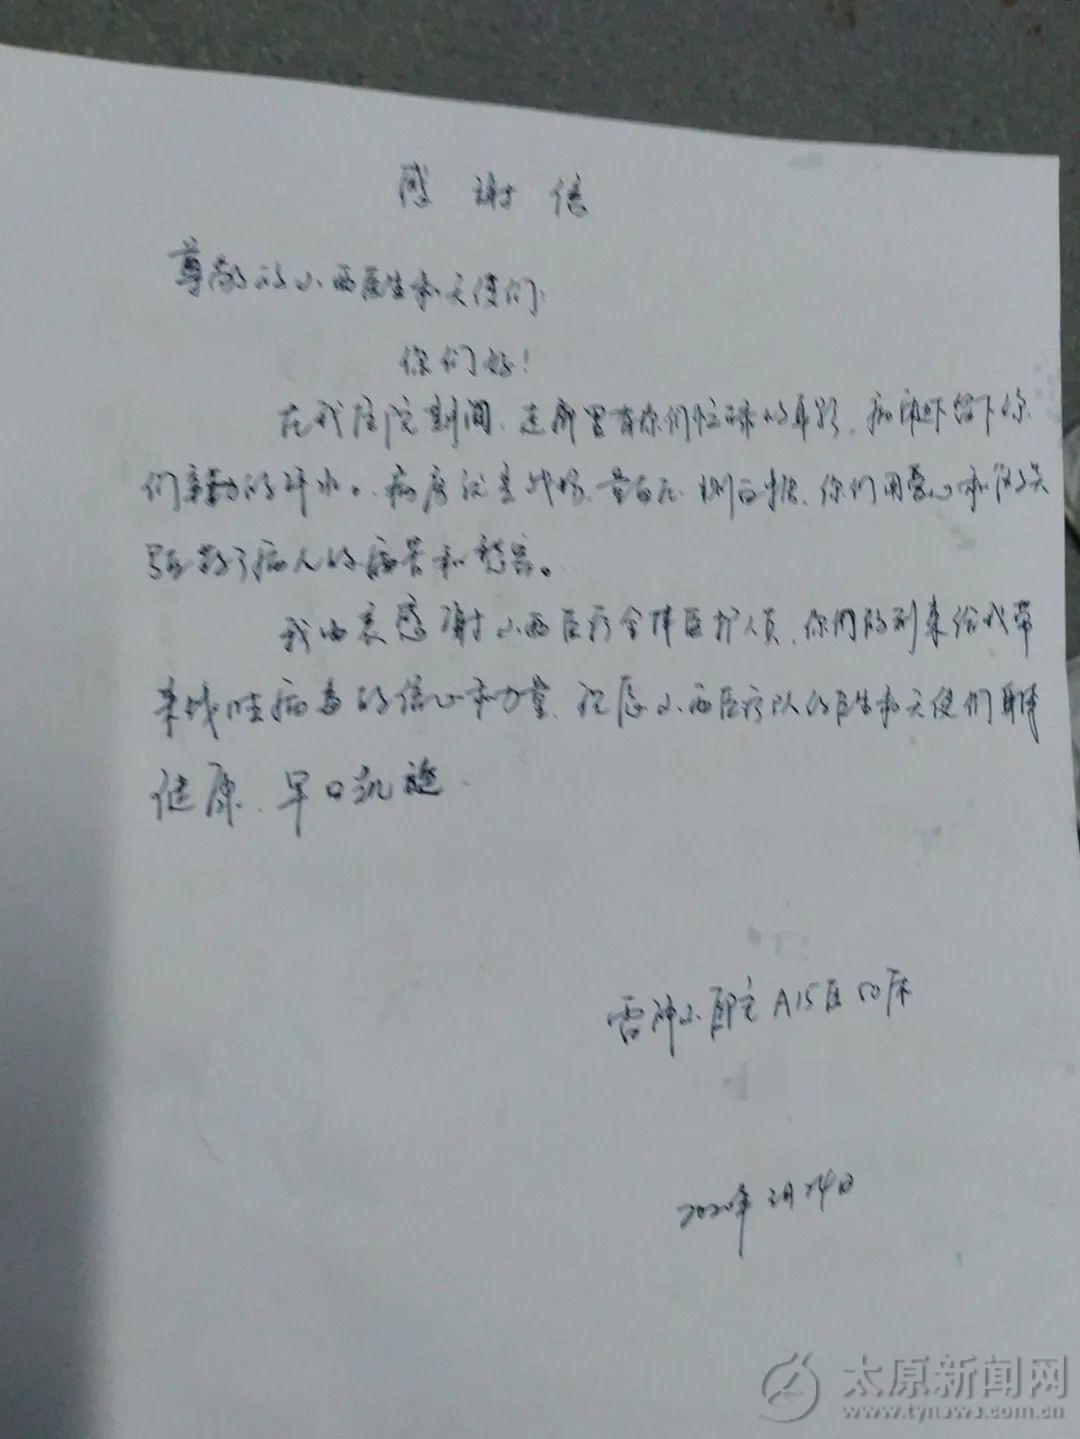 感谢信
尊敬的山西医生和天使们:
你们好!
在我住院期间,走廊里有你们忙碌的身影,病床下留下你
们辛勤的汗水。病房就是战场,量血压,测血糖,你们用爱心和微笑
驱散了病人的痛苦和愁容。
我由衷感谢山西医疗全体医护人员,你们的到来给我带
来战胜病毒的信心和力量,祝愿山西医疗队的医生和天使们身体
健康、早日凯旋.
雷神山医院A15区50床
2020年3月14日
太原新闻网
www.tynews.com.cn